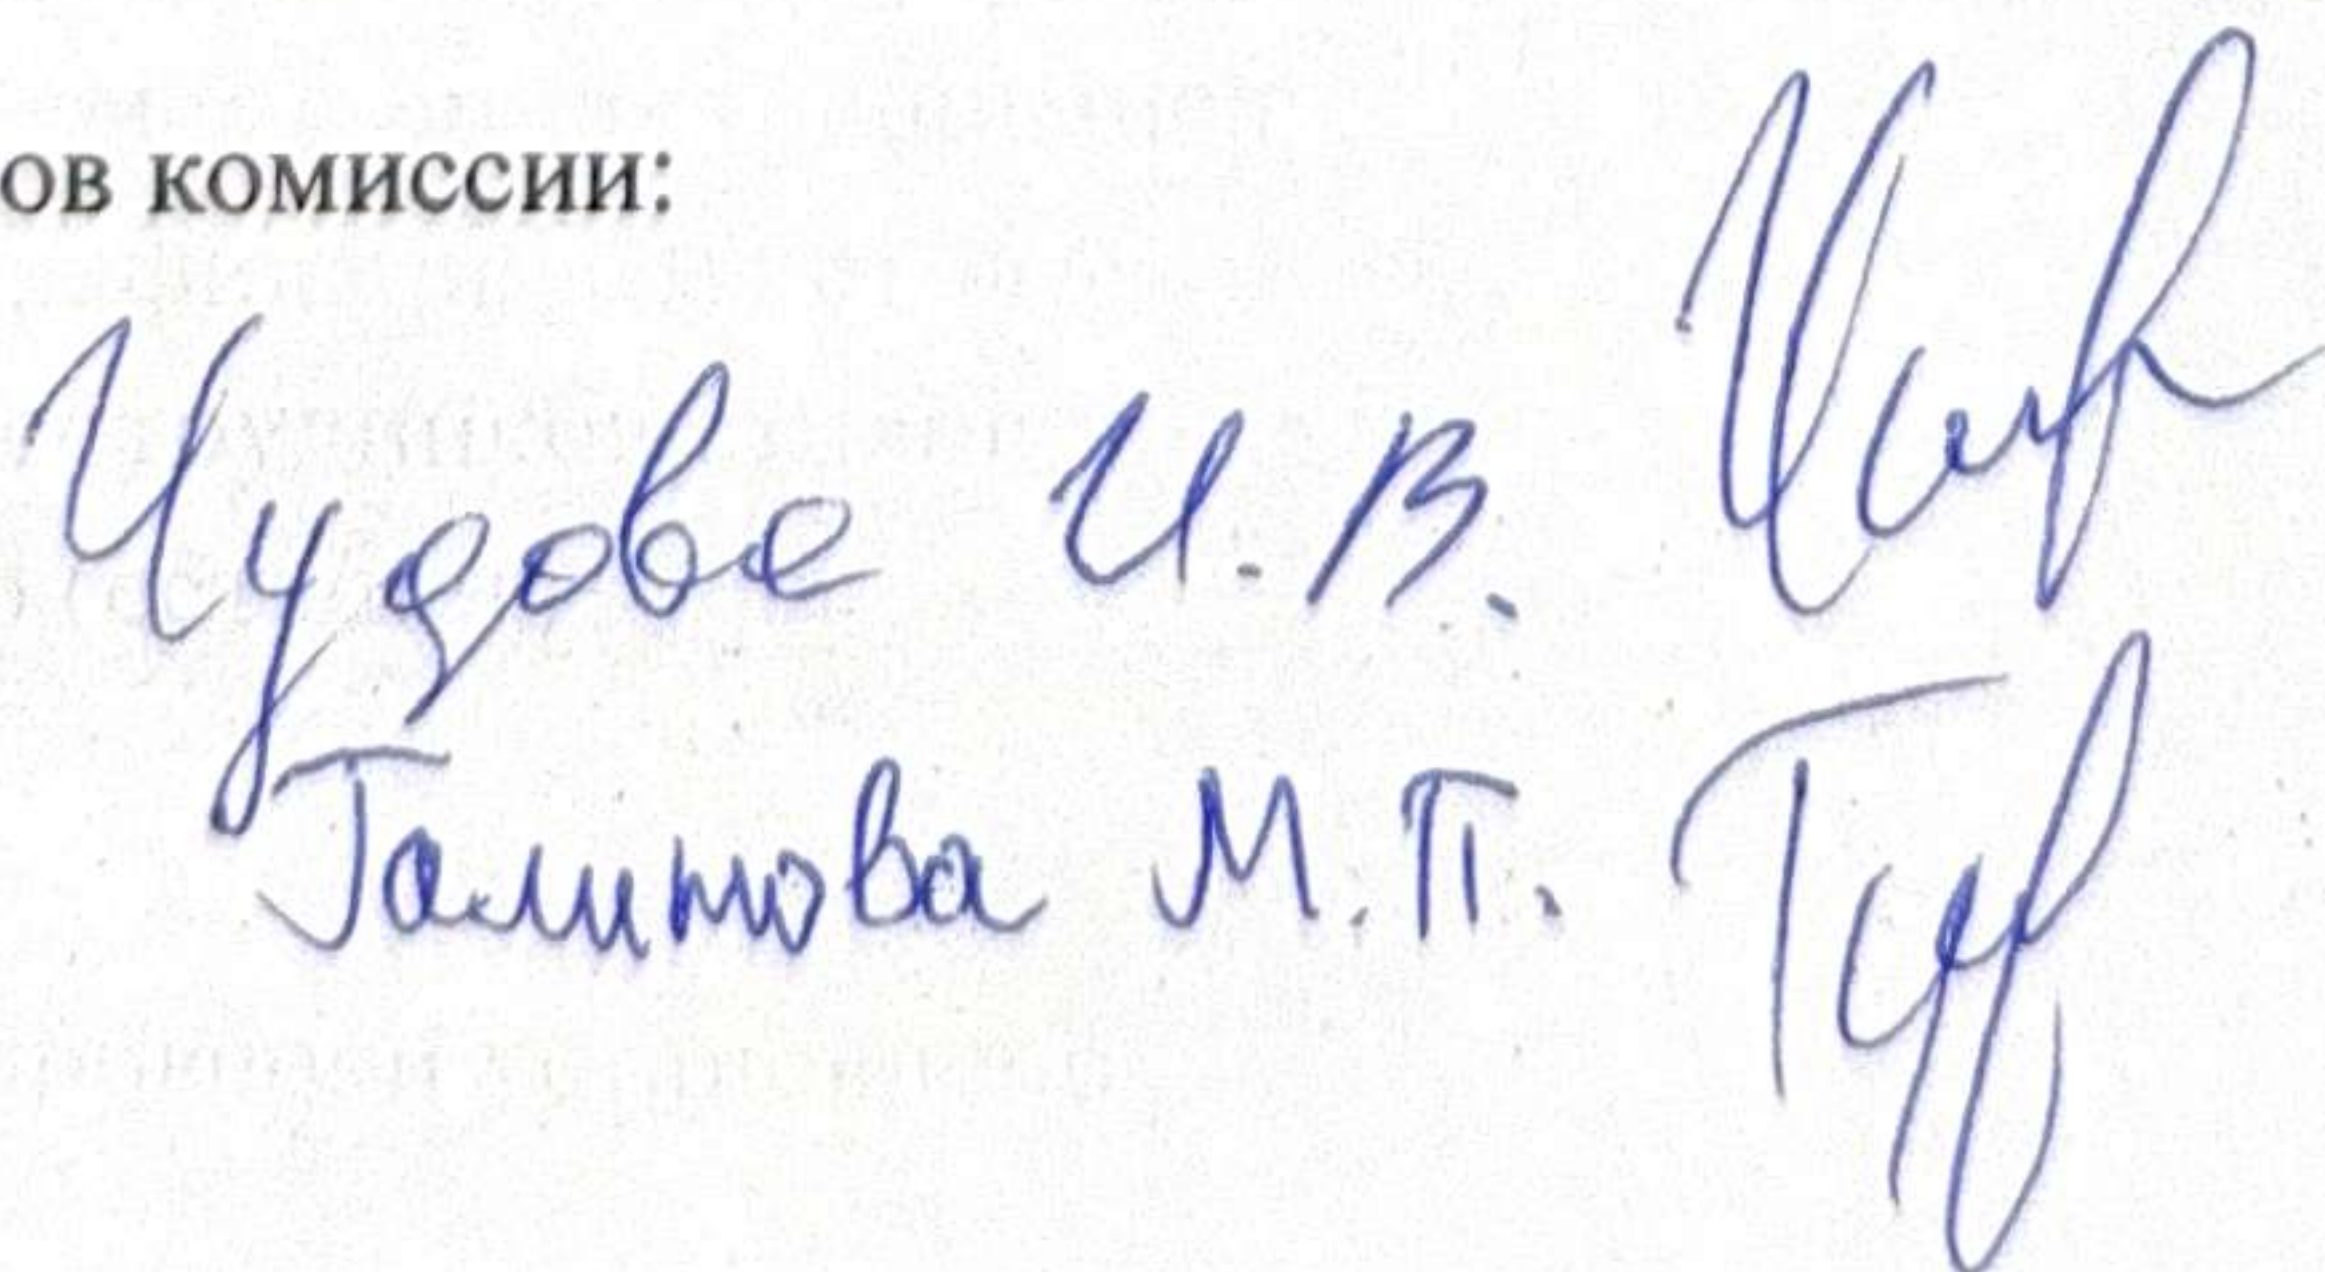 ов комиссии:
Чудова И.В.
Галитова М.П.